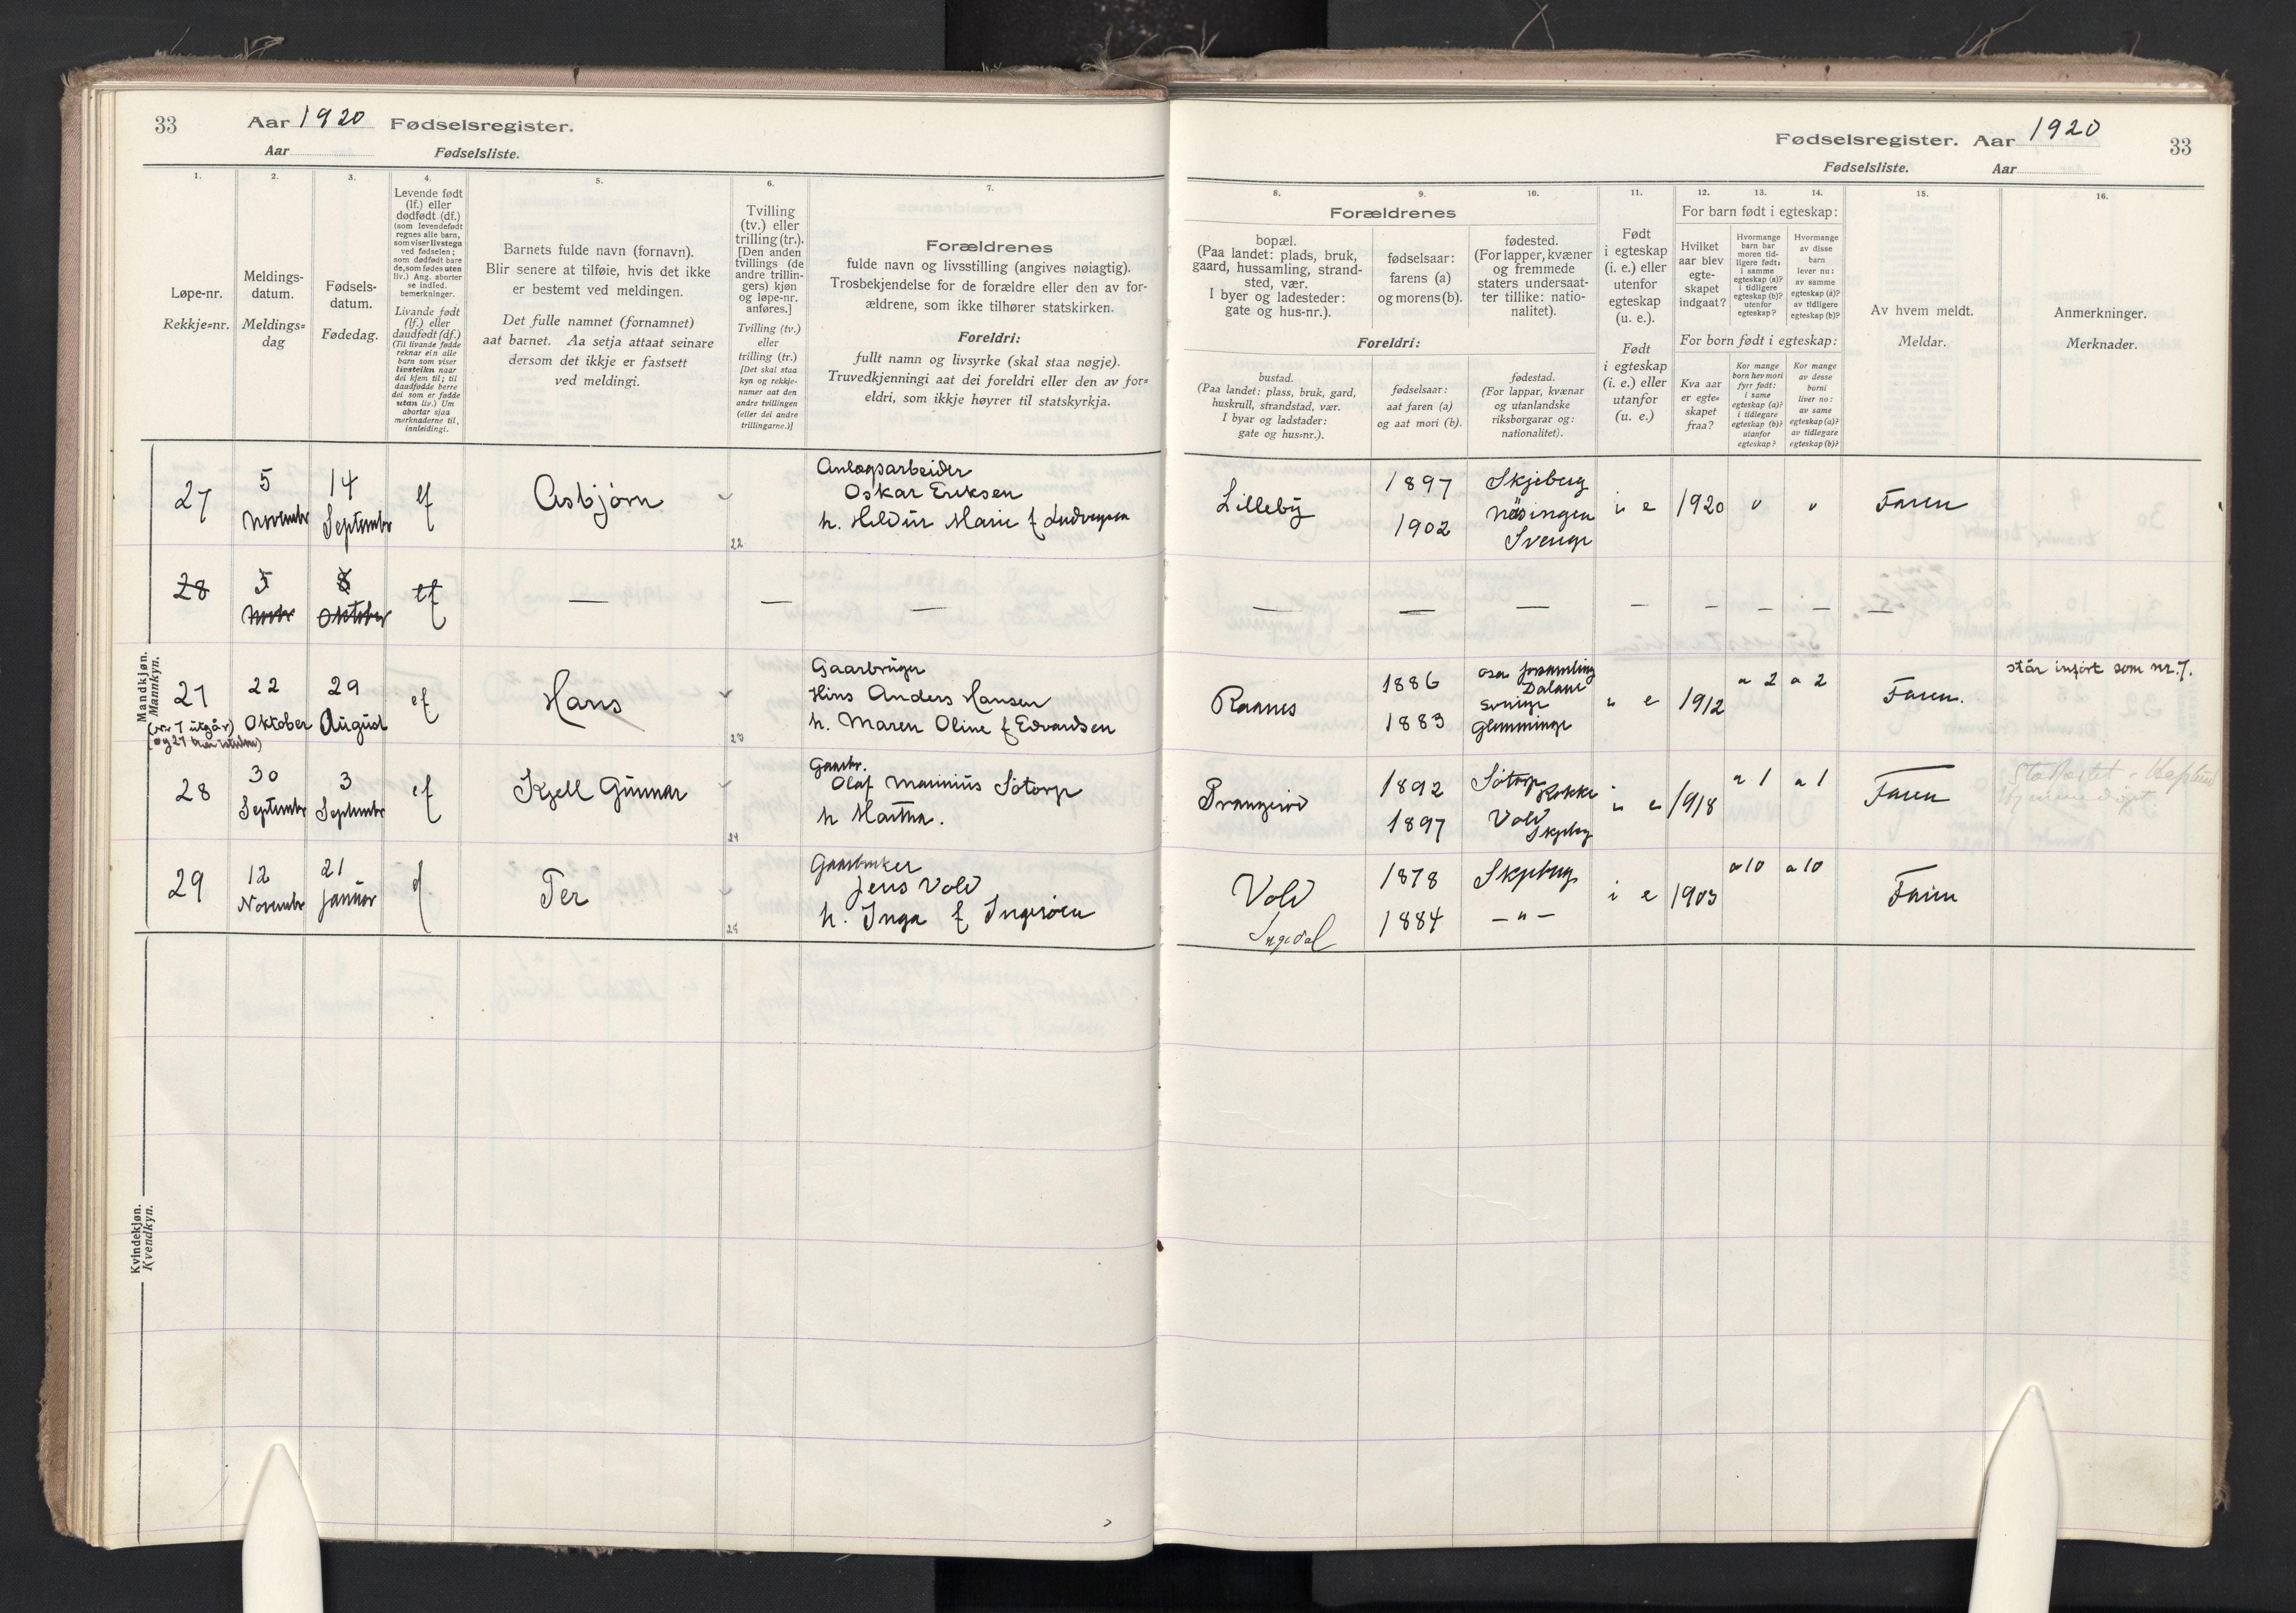 33
Aar 1920 Fødselsregister.
Aar Fødselsliste.
1.
Løpe-nr.
Rekkje=nr.
2.
Meldings-
datum.
Meldings=
dag
3.
Fødsels-
datum.
Fødedag.
4.
Levende født
(lf.) eller
dødfødt (df.)
(som levendefødt
regnes alle barn,
som viser livstegn
ved fødselen;
som dødfødt bare
de, som fødes uten
liv.) Ang. aborter
se indled.
bemerkninger.
Livande født
(lf.) eller
daudfødt (df.)
(Til livande fødde
reknar ein alle
barn som viser
livsteikn naar
dei kjem til; til
daudfødde berre
dei som er fødde
utan liv.) Um
abortar sjaa
merknaderne til,
innleidingi.
5.
Barnets fulde navn (fornavn).
Blir senere at tilføie, hvis det ikke
er bestemt ved meldingen.
Det fulle namnet (fornamnet)
aat barnet. Aa setja attaat seinare
dersom det ikkje er fastsett
ved meldingi.
6.
Tvilling
(tv.) eller
trilling (tr.).
[Den anden
tvillings (de
andre trillin-
gers) kjøn
og løpe-nr.
anføres.]
Tvilling (tv.)
eller
trilling (tr.)
[Det skal staa
kyn og rekkje-
numer aat den
andre tvillingen
(eller dei andre
trillingarne.)]
7.
Forældrenes
fulde navn og livsstilling (angives nøiagtig).
Trosbekjendelse for de forældre eller den av for-
ældrene, som ikke tilhører statskirken.
Foreldri:
fullt namn og livsyrke (skal staa nøgje).
Truvedkjenningi aat dei foreldri eller den av for=
eldri, som ikkje høyrer til statskyrkja.
Mandkjøn.
Mannkyn.
27
5
Novembr
14
Septembr
lf
Asbjørn
22
Anlægsarbeider
Oskar Eriksen
h. Hildur Marie f Ludvigsen
28
5
Novbr
8
Oktober
lf
— — —
27
(nr 7 utgår)
22
Oktober
29
August
lf
Hans
23
Gaarbruger
Hans Anders Hansen
h. Maren Oline f Edvardsen
28
30
Septembr
3
Septembr
lf
Kjell Gunnar
24
Gaarbr.
Olaf Marinius Sòtorp
h Martha.
29
12
Novembr
21
Januar
lf
Per
25
Gaarbruker
Jens Vold
h. Inga f Ingerøen
Kvindekjøn.
Kvendkyn.
Fødselsregister. Aar 1920
33
Fødselsliste. Aar
8.
Forældrenes
bopæl.
(Paa landet: plads, bruk,
gaard, hussamling, strand-
sted, vær.
I byer og ladesteder:
gate og hus-nr.).
Foreldri:
bustad.
(Paa landet: plass, bruk, gard,
huskrull, strandstad, vær.
I byar og ladstader:
gate og hus=nr.).
9.
fødselsaar:
farens (a)
og morens (b).
fødselsaar:
aat faren (a)
og aat mori (b).
10.
fødested.
(For lapper, kvæner
og fremmede
staters undersaat-
ter tillike: natio-
nalitet).
fødestad.
(For lappar, kvænar
og utanlandske
riksborgarar og:
nationalitet).
11.
Født
i egteskap
(i. e.) eller
utenfor
egteskap
(u. e.).
Født
i egteskap
(i. e.) eller
utanfor
(u. e.)
For barn født i egteskap:
12.
Hvilket
aar blev
egte-
skapet
indgaat?
13.
Hvormange
barn har
moren tid-
ligere født:
i samme
egteskap (a)?
i tidligere
egteskap (b)?
utenfor
egteskap?
14.
Hvormange
av disse
barn
lever nu:
av samme
egteskap (a)?
av tidligere
egteskap (b)?
For born født i egteskap:
Kva aar
er egte=
skapet
fraa?
Kor mange
born hev mori
fyrr født:
i same
egteskap (a)?
i tidlegare
egteskap (b)?
utanfor
egteskap?
Kor mange
av desse
borni
liver no:
av same
egteskap (a)?
av tidlegare
egteskap (b)?
15.
Av hvem meldt.
Meldar.
16.
Anmerkninger.
Merknader.
Lilleby
1897
1902
Skjeberg
Näsingen
Sverige
i e
1920
"
"
Faren
— — — — — — — —
Raanes
1886
1883
Dalarne
Sverige
Glemminge
i e
1912
a 2
a 2
Faren.
står inført som nr. 7.
Prangerød
1892
1897
Sòtorp
Rokke
Vold
Skjeberg
i e
1918
a 1
a 1
Faren
Vold
Ingedal
1878
1884
Skjeberg
— " —
i e
1903
a 10
a 10
Faren